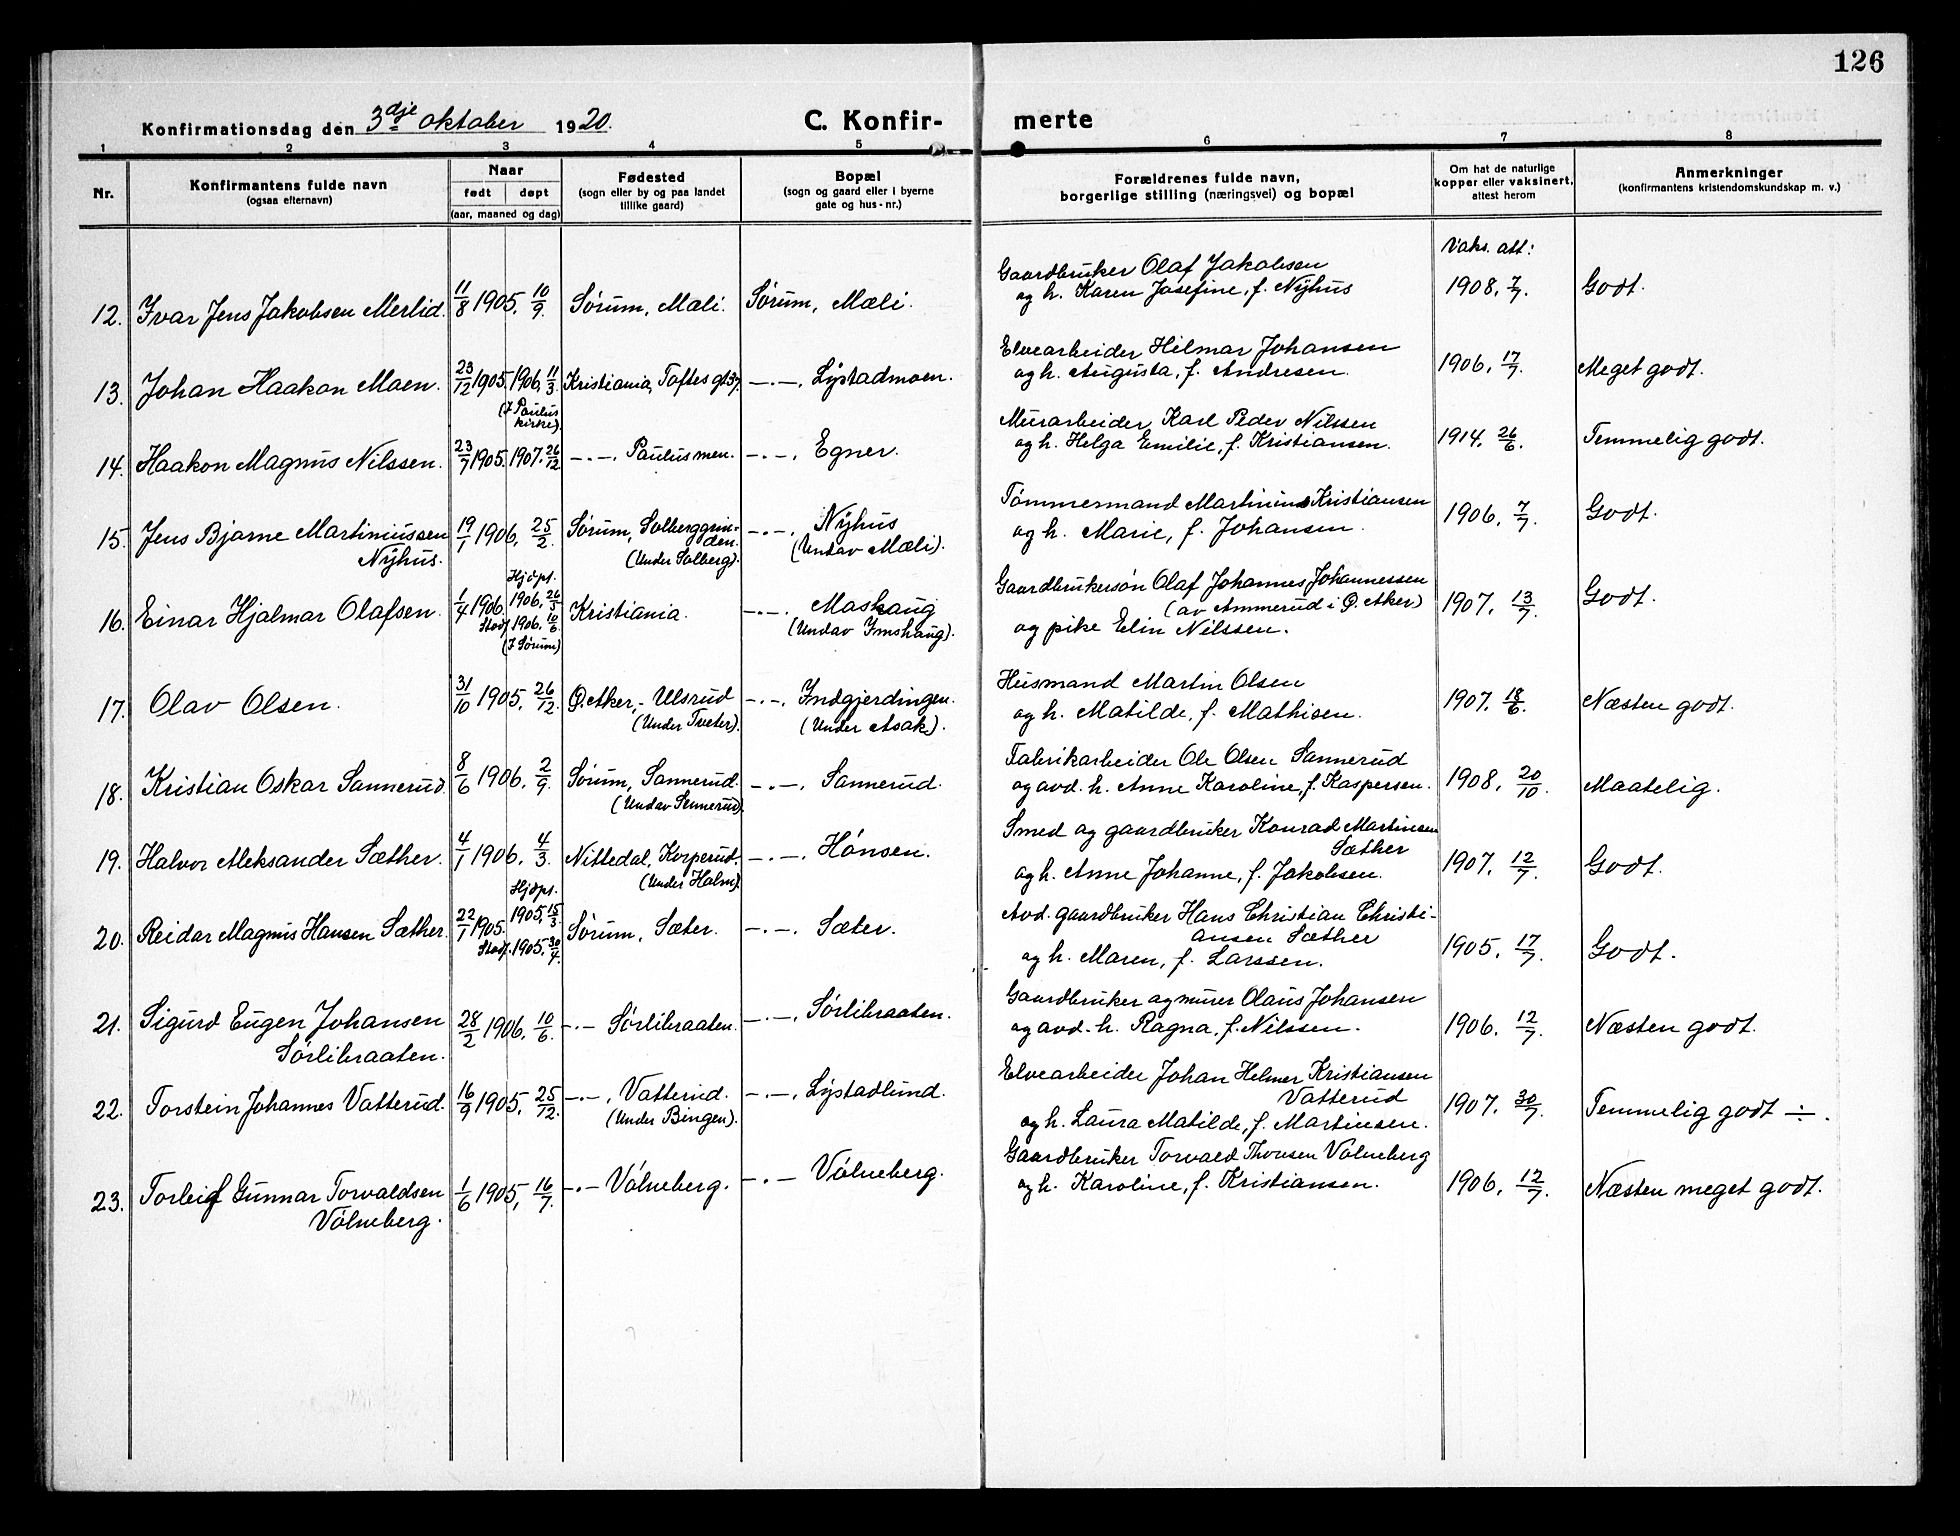 126
Konfirmationsdag den 3dje oktober 1920. C. Konfirmerte
1 2 3 4 5 6 7 8
Nr. Konfirmantens fulde navn (ogsaa efternavn) Naar født døpt (aar, maaned og dag) Fødested (sogn eller by og paa landet tillike gaard) Bopæl (sogn og gaard eller i byerne gate og hus-nr.) Forældrenes fulde navn, borgerlige stilling (næringsvei) og bopæl Om hat de naturlige kopper eller vaksinert, attest herom Anmerkninger (konfirmantens kristendomskundskap m. v.)
Vaks. att:
12. Ivar Jens Jakobsen Merlid. 11/8 1905. 10/9. Sørum, Mæli. Sørum, Mæli. Gaardbruker Olaf Jakobsen
og h. Karen Josefine, f. Nyhus 1908. 7/7. Godt.
13. Johan Haakon Moen. 23/12 1905. 1906. 11/3. (I Paulus kirke). Kristiania, Toftes gt 37. —.—. Lystadmoen. Elvearbeider Hilmar Johansen
og h. Augusta, f. Andresen. 1906. 17/7. Meget godt.
14. Haakon Magnus Nilssen. 23/7 1905. 1907. 26/12 —.—. Paulus men. —.—. Egner. Murarbeider Karl Peder Nilssen
og h. Helga Emilie, f. Kristiansen. 1914. 26/6. Temmelig godt.
15. Jens Bjarne Martiniussen Sørum, Solberggrin- —.—. Nyhus Tømmermand Martinius Kristiansen
Nyhus. 19/1 1906. 25/2. den. (Under Solberg). (Undav Mæli). og h. Marie, f. Johansen. 1906. 7/7. Godt.
16. Einar Hjalmar Olafsen. 1/4 1906. Hjdpt. 1906. 26/5 Stadf. 1906. 10/6 (I Sørum) Kristiania. —.—. Mashaug (Undav Imshaug). Gaardbrukersøn Olaf Johannes Johannessen
(av Ammerud i Ø. Aker)
og pike Elin Nilssen. 1907. 13/7. Godt.
17. Olav Olsen. 31/10 1905. 26/12. Ø. Aker, - Ulsrud (Under Tveter). —.—. Indgjerdingen. (Under Asak). Husmand Martin Olsen
og h. Matilde, f. Mathisen. 1907. 18/6. Næsten godt.
18. Kristian Oskar Sannerud. 8/6 1906. 2/9. Sørum, Sannerud. (Undav Sennerud). —.—. Sannerud. Fabrikarbeider Ole Olsen Sannerud
og avd. h. Anne Karoline, f. Kaspersen. 1908. 20/10. Maatelig.
19. Halvor Aleksander Sæther. 4/1 1906. 4/3. Nittedal, Korperud. (Under Holm). —.—. Hønsen. Smed og gaardbruker Konrad Martinsen
Sæther
og h. Anne Johanne, f. Jakobsen. 1907. 12/7. Godt.
20. Reidar Magnus Hansen Sæther. 22/1 1905. Hjdpt. 1905. 15/3 Stadf. 1905. 30/4. Sørum, Sæter. —.—. Sæter. Avd. gaardbruker Hans Christian Christi-
ansen Sæther
og h. Maren, f. Larssen. 1905. 17/7. Godt.
21. Sigurd Eugen Johansen Gaardbruker og murer Olaus Johansen
Sørlibraaten. 28/2 1906. 10/6. —.— Sørlibraaten. —.—. Sørlibraaten. og avd. h. Ragna, f. Nilssen. 1906. 12/7. Næsten godt.
22. Torstein Johannes Vatterud. 16/9 1905. 25/12. —.—. Vatterud. (Under Bingen). —.—. Lystadlund. Elvearbeider Johan Helmer Kristiansen
Vatterud
og h. Laura Matilde, f. Martinsen. 1907. 30/7. Temmelig godt ÷.
23. Torleif Gunnar Torvaldsen Gaardbruker Torvald Thoresen Vølneberg
Vølneberg. 1/6 1905. 16/7. —.— Vølneberg. —.— Vølneberg. og h. Karoline, f. Kristiansen. 1906. 12/7. Næsten meget godt.